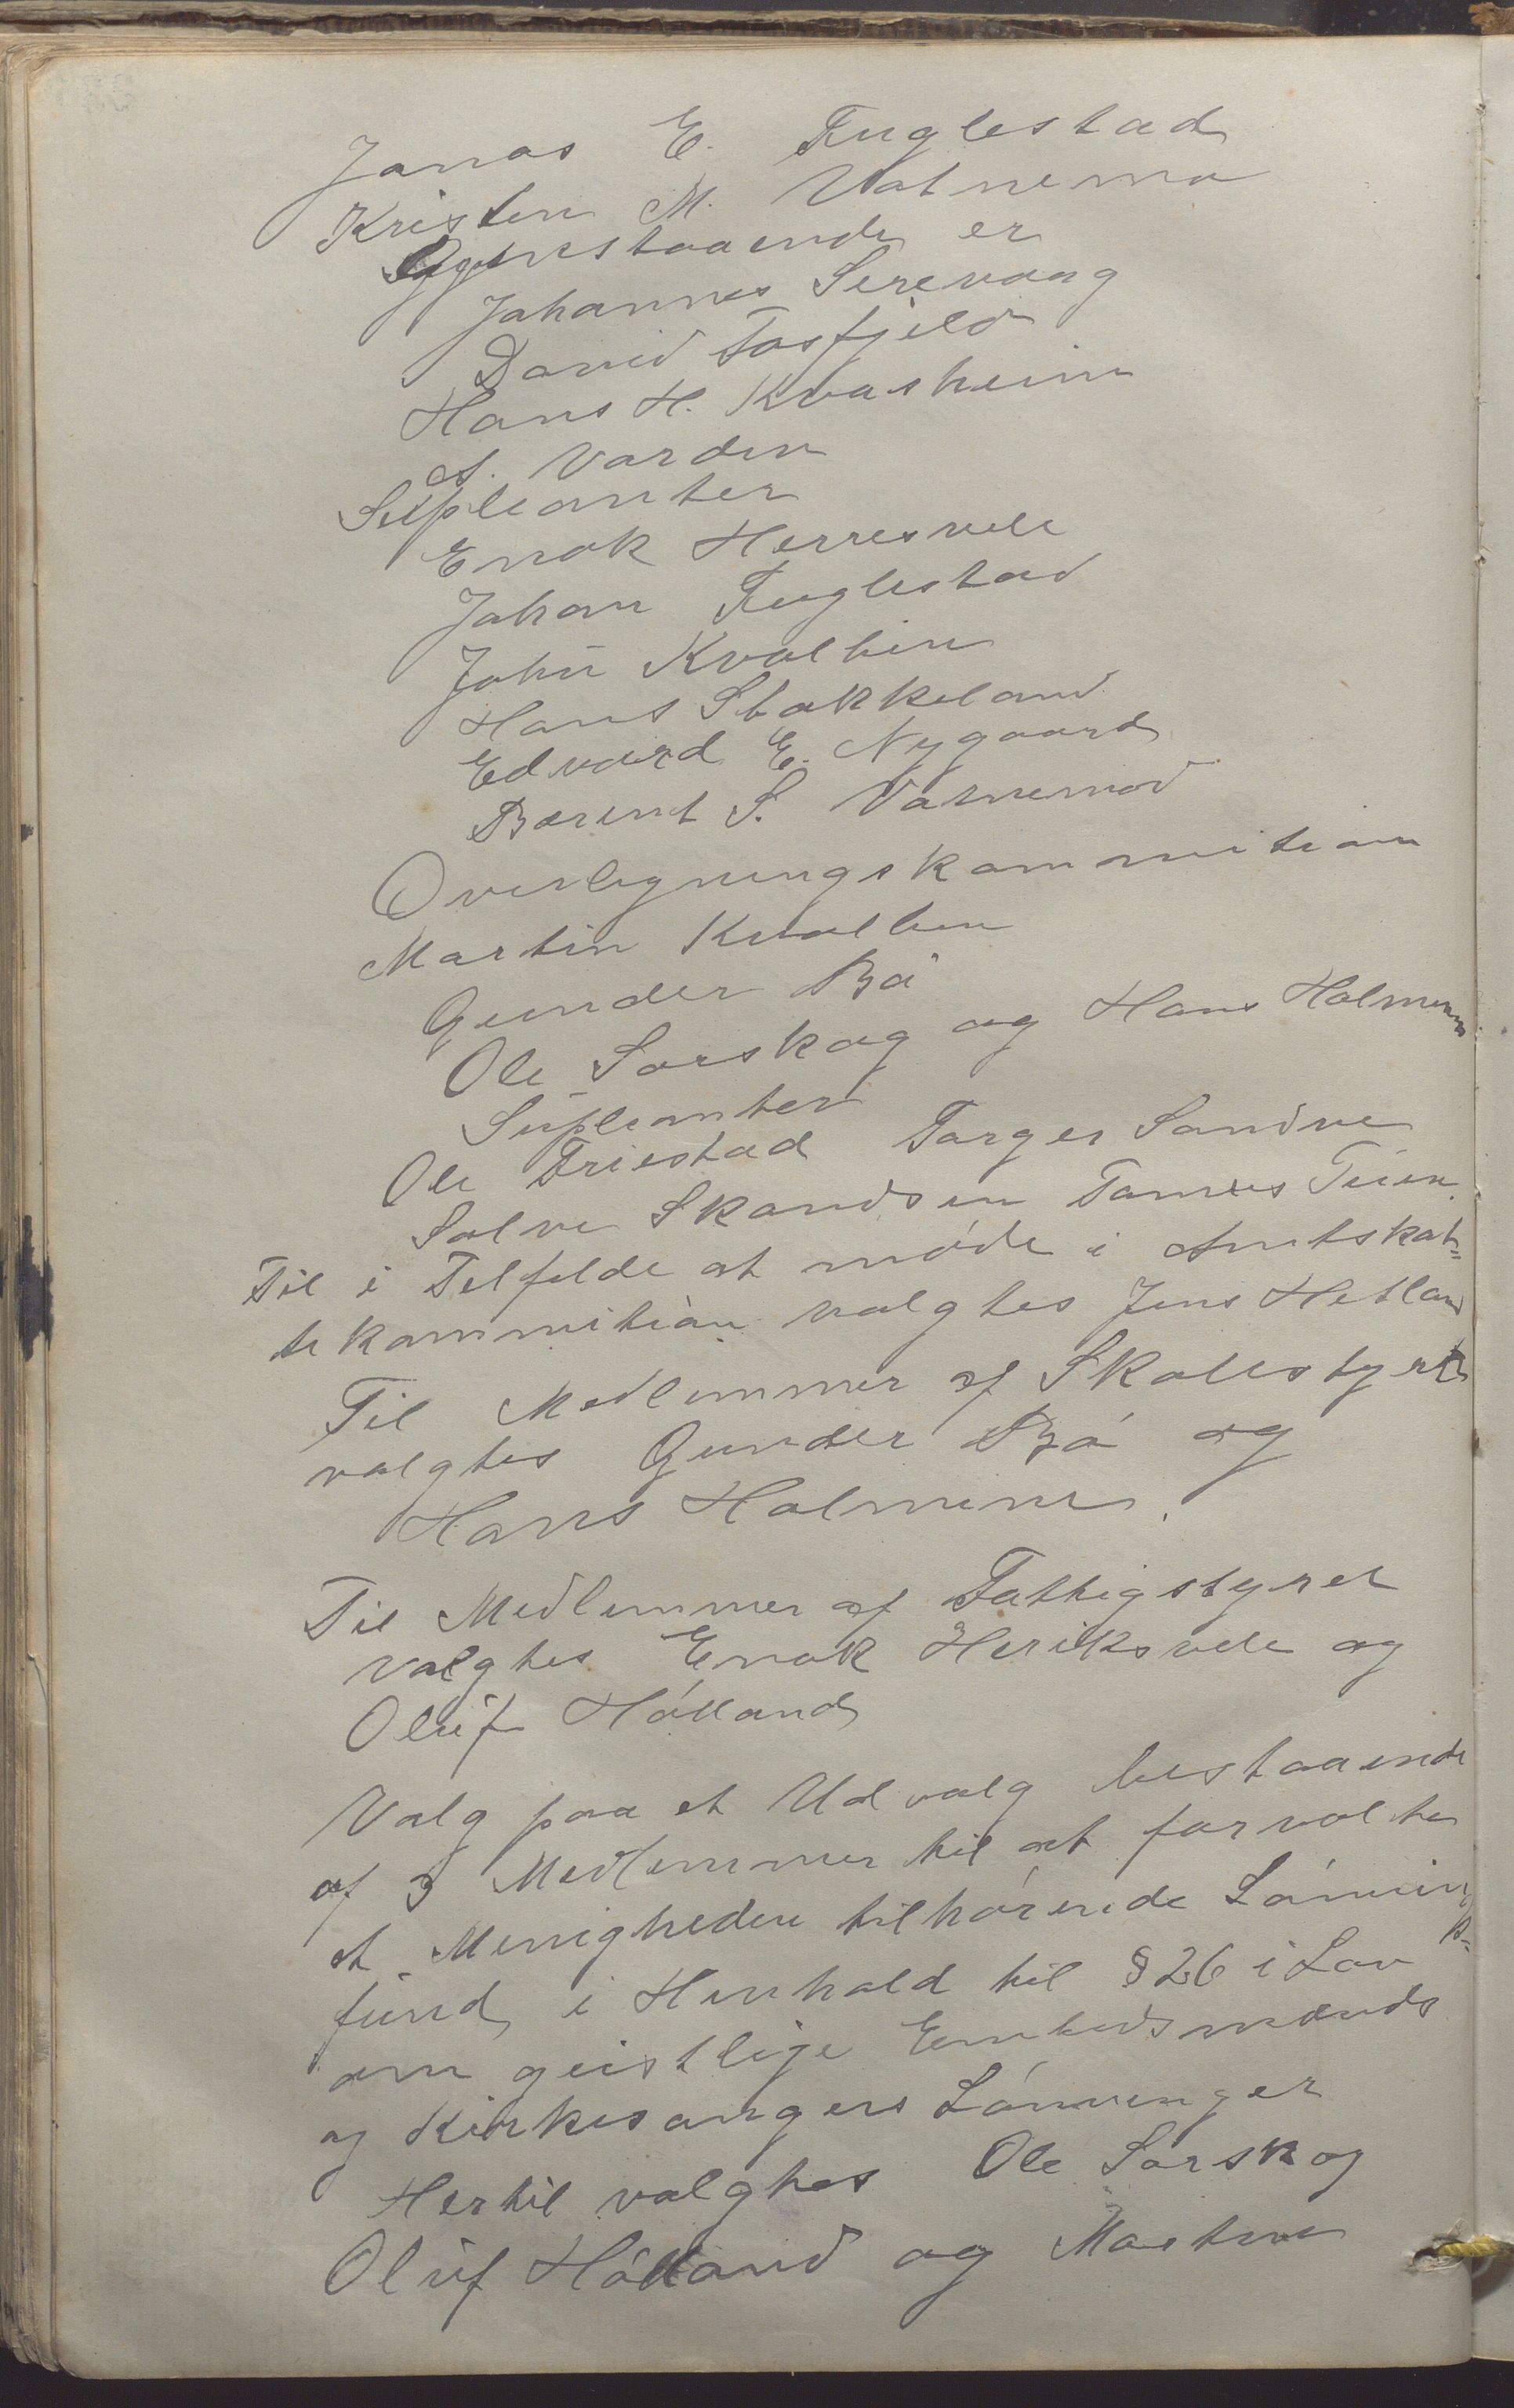 Jonas E. Fuglestad
Kristen M. Vatnemo
Gjenstaaende er
Johannes Sirevaag
David Tosfjeld
Hans H. Kvasheim
A. Varden
Supleanter
Enok Herresvele
Johan Fuglestad
John Kvalbein
Hans Stokkeland
Edvard E. Nygaard
Berent S. Vatnemod
Overligningskommition
Martin Kvalben
Gunder Bö
Ole Sorskog og Hans Holmene
Supleanter
Ole Friestad Torger Sandve
Solve Skandsen Tonnes Tuen
Til i Telfelde at möde i Amtskat-
tekommition valgtes Jens Hetland
Til Medlemmer af Skolestyret
valgtes Gunder Bö og
Hans Holmene.
Til Medlemmer af Fattigstyret
valgtes Enok Heriksvele og
Oluf Hölland
Valg paa et Udvalg bestaaende
af 3 Medlemmer til at forvalte
et Menigheden tilhörende Lönnings-
fund i Henhold til § 26 i Lov
om geistlige Embedsmænds
og Kirkesangers Lönninger
Hertil valgtes Ole Sorskog
Oluf Hölland og Martin